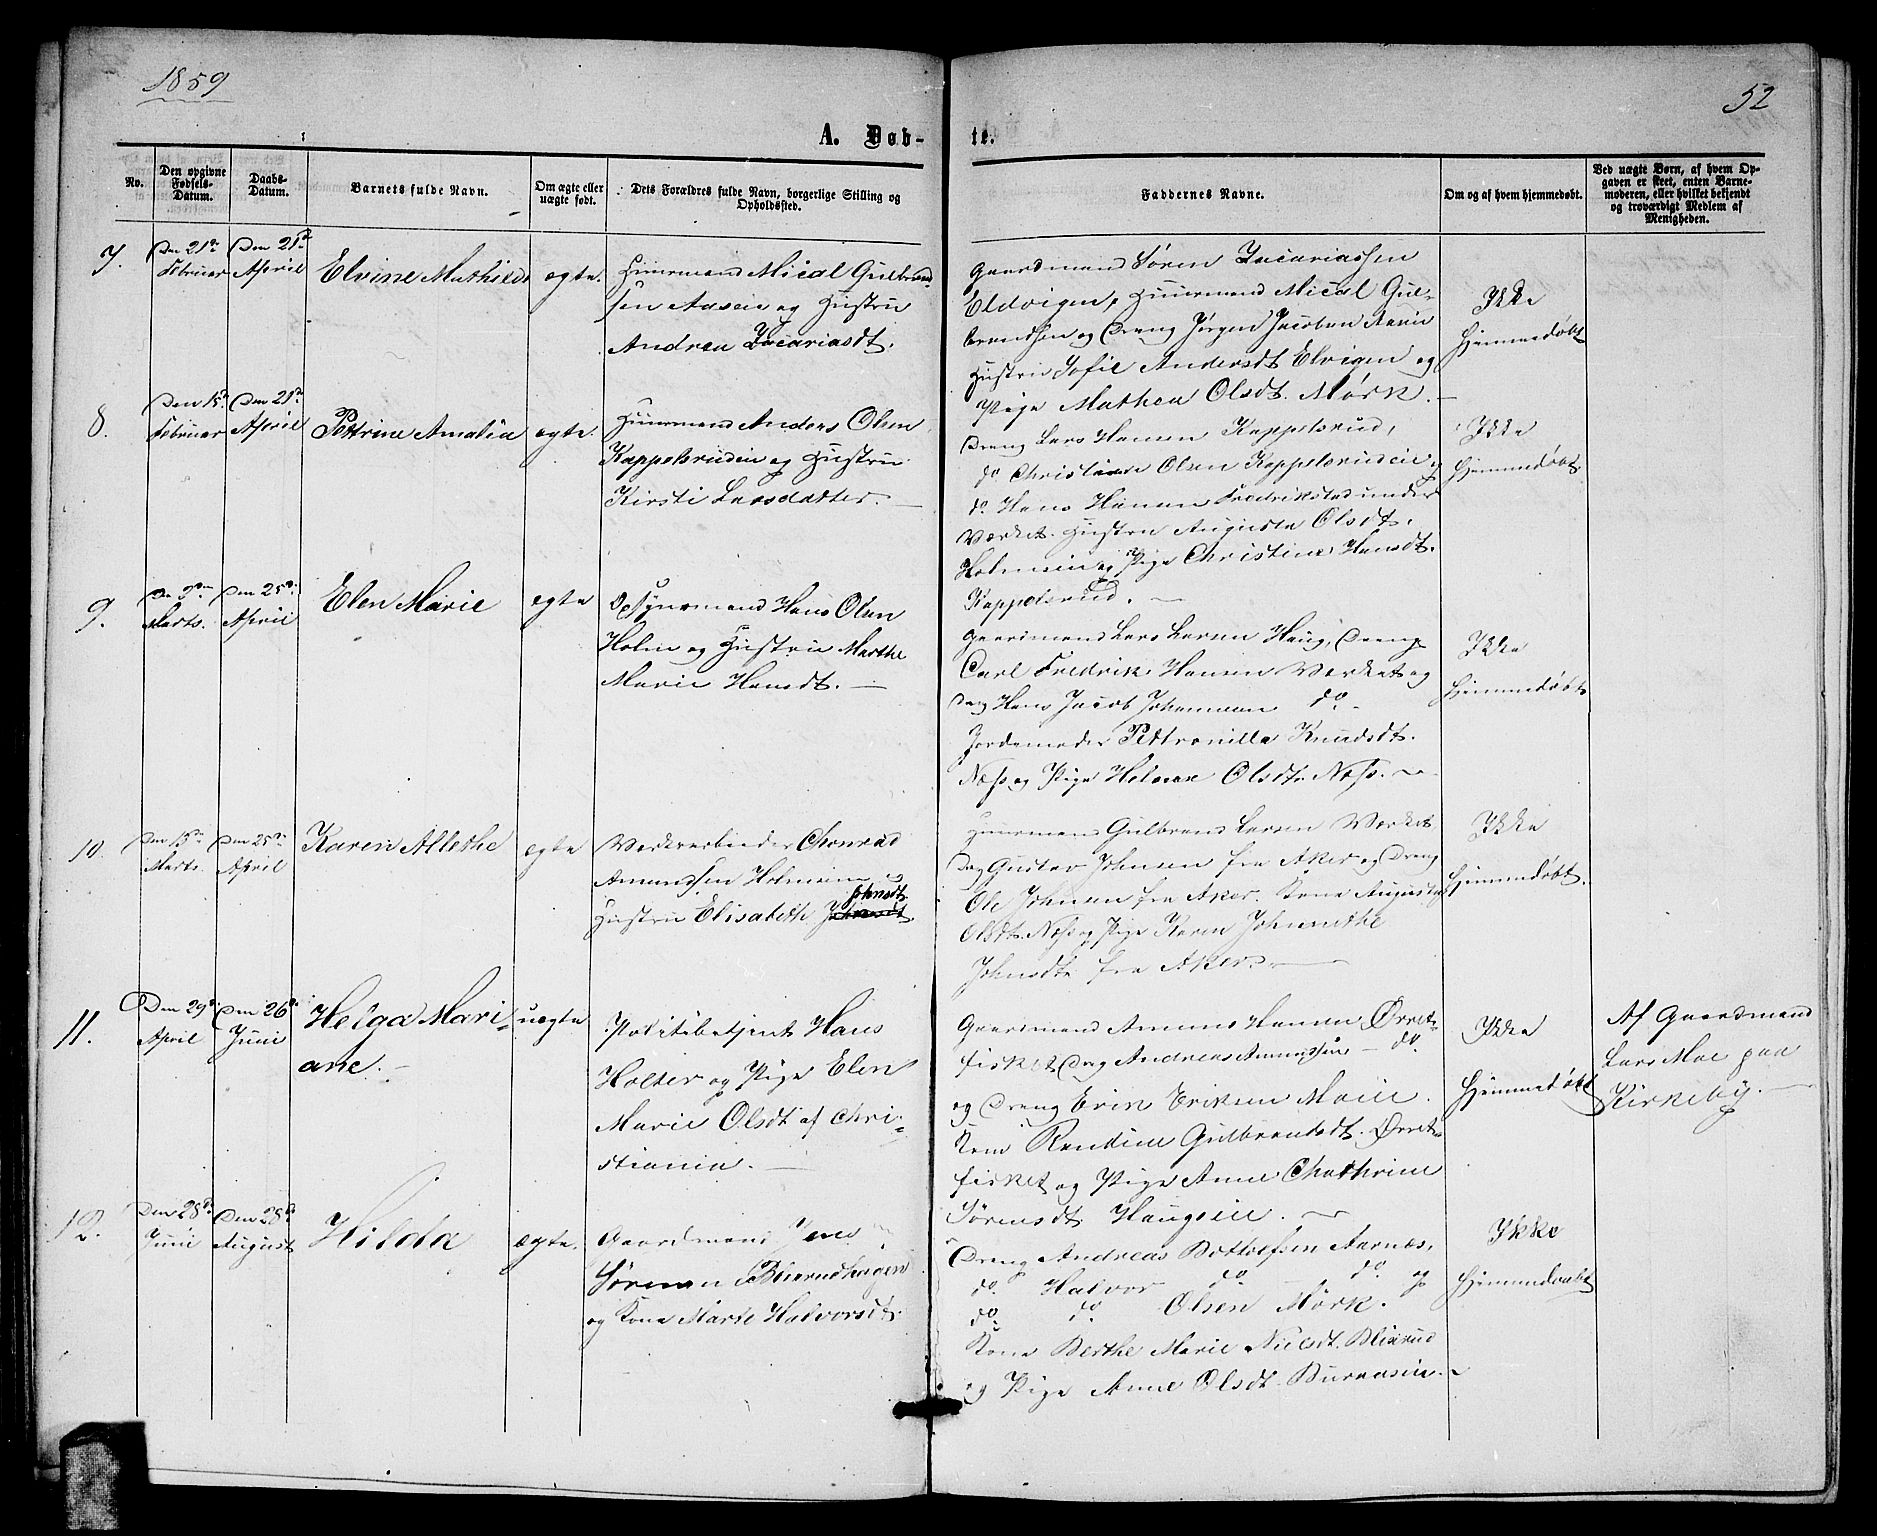 1859
52
A. Døb-
te.
No.
Den opgivne Fødsels-Datum.
Daabs-Datum.
Barnets fulde Navn.
Om ægte eller uægte født.
Dets Forældres fulde Navn, borgerlige Stilling og Opholdssted.
Faddernes Navne.
Om og af hvem hjemmedøbt.
Ved uægte Børn, af hvem Opgaven er skeet, enten Barnemoderen, eller hvilket bekjendt og troværdigt Medlem af Menigheden.
7.
Den 21de
Februar
Den 21de
April
Elvine Mathilde
ægte.
Huusmand Mical Gulbrand
sen Aaseie og Hustru
Andrea Zacariasdt.
Gaardmand Søren Zacariassen
Eldvigen, Huusmand Mical Gul-
brandsen og Dreng Jørgen Jacobsen
Hustru Sofie Andersdt Elvigen og
Pige Mathea Olsdt. Mørk.
Ikke
Hjemmedøbt
8.
Den 15de
Februar
Den 21de
April
Pettrine Amalia
ægte.
Huusmand Anders Olsen
Kappelsrudeie og Hustru
Kirsti Larsdatter.
Dreng Lars Hansen Kappelsrud,
do Christian Olsen Kappelsrudeie og
do. Hans Hansen Fredrikstad under
Værket. Hustru Augusta Olsdt.
Holmeie og Pige Christine Hansdt.
Kappelsrud.
Ikke
Hjemmedøbt.
9.
Den 9de
Marts.
Den 25de
April
Elen Marie
ægte
Opsynsmand Hans Olsen
Holm og Hustru Marthe
Marie Hansdt.
Gaardmand Lars Larsen Haug, Dreng
Carl Fredrik Hansen Værket og
Dreng Hans Jacob Johannesen do.
Jordemoder Pettronille Knudsdt.
Næs og Pige Helene Olsdt. Næs.
Ikke
Hjemmedøbt
10.
Den 15de
Marts.
Den 25de
April
Karen Allethe
ægte
Værkarbeider Chonrad
Amundsen Holmeie og
Hustru Elisabeth Johnsdt.
Huusmand Gulbrand Larsen Værket,
Dreng Gustav Johnsen fra Aker og Dreng
Ole Johnsen fra Aker. Kone Augusta
Olsdt. Næs og Pige Karen Johannethe
Johnsdt. fra Aker.
Ikke
Hjemmedøbt.
11.
Den 29de
April
Den 26de
Juni
Helga Mari-
ane.
uægte
Politibetjent Hans
Holter og Pige Elen
Marie Olsdt af Chri-
stiania.
Gaardmand Amund Hansen Ørret-
fisket, Dreng Andreas Amundsen do.
og Dreng Erik Eriksen Moeie.
Kone Randine Gulbrandsdt. Ørret-
fisket og Pige Anne Chathrine
Sørensdt Haugseie.
Ikke
Hjemmedøbt
Af Gaardmand
Lars Moe paa
Kirkeby.
12.
Den 28de
Juni
Den 28de
August
Hilda
ægte.
Gaardmand Jens
Sørensen
og Kone Marte Halvorsdt.
Dreng Andreas Aarnæs,
do. Halvor do. do. og
do. do. Olsen Mørk.
Kone Berthe Marie Nielsdt. Blixrud
og Pige Anne Olsdt.
Ikke
Hjemmedøbt